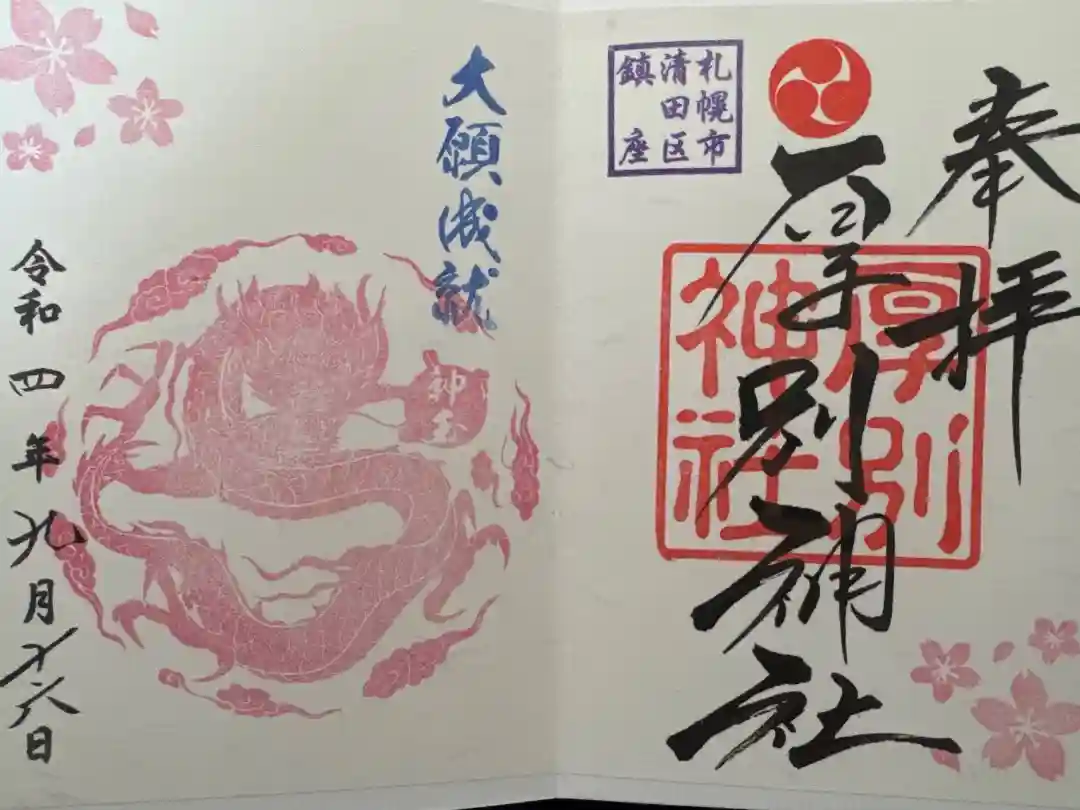 奉拝
厚別神社
厚別
神社
札幌市
清田区
鎮座
大願成就
神玉
令和四年九月十六日